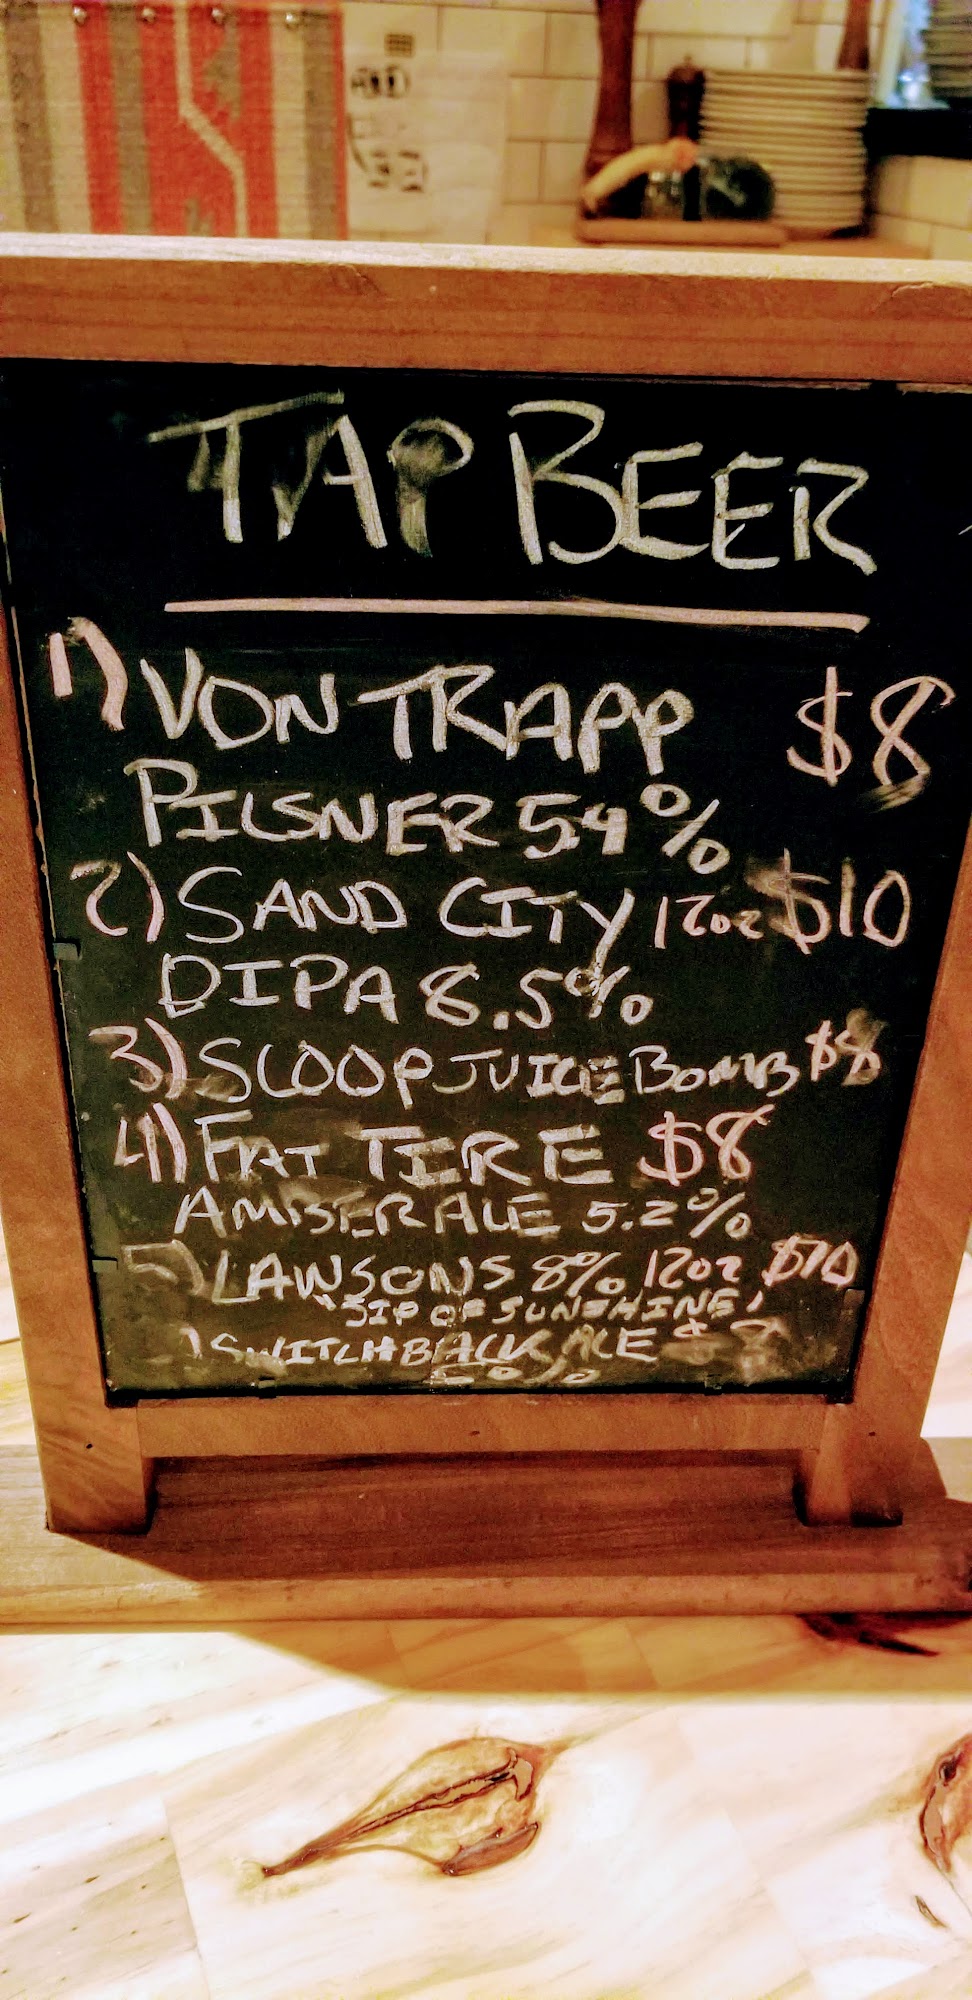 TAP BEER
1) VON TRAPP $8
PILSNER 5.4%
2) SAND CITY 12oz $10
DIPA 8.5%
3) SLOOP JUICE BOMB $8
4) FAT TIRE $8
AMBER ALE 5.2%
5) LAWSONS 8% 12oz $10
"SIP OF SUNSHINE"
) SWITCHBACK ALE $